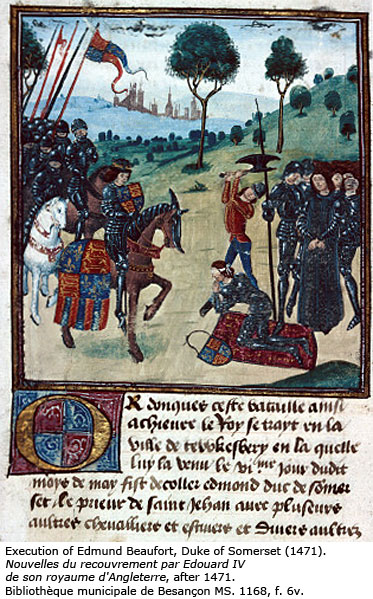 OR donques ceste bataille ainsi
achieuee le Roy se trayt en la
ville de tewkesbery en la quelle
luy la venu le vi^me jour dudit
moys de may fist decoller edmond duc de somer
set / le prieur de saint Jehan auec pluseurs
aultres chevalliers et escuiers et diuers aultres
Execution of Edmund Beaufort, Duke of Somerset (1471).
Nouvelles du recouvrement par Edouard IV
de son royaume d'Angleterre, after 1471.
Bibliothèque municipale de Besançon MS. 1168, f. 6v.